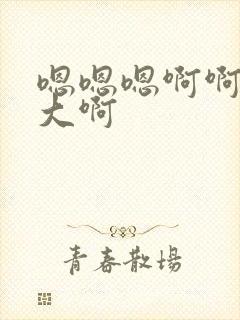 嗯嗯嗯啊啊
大啊
青春散場